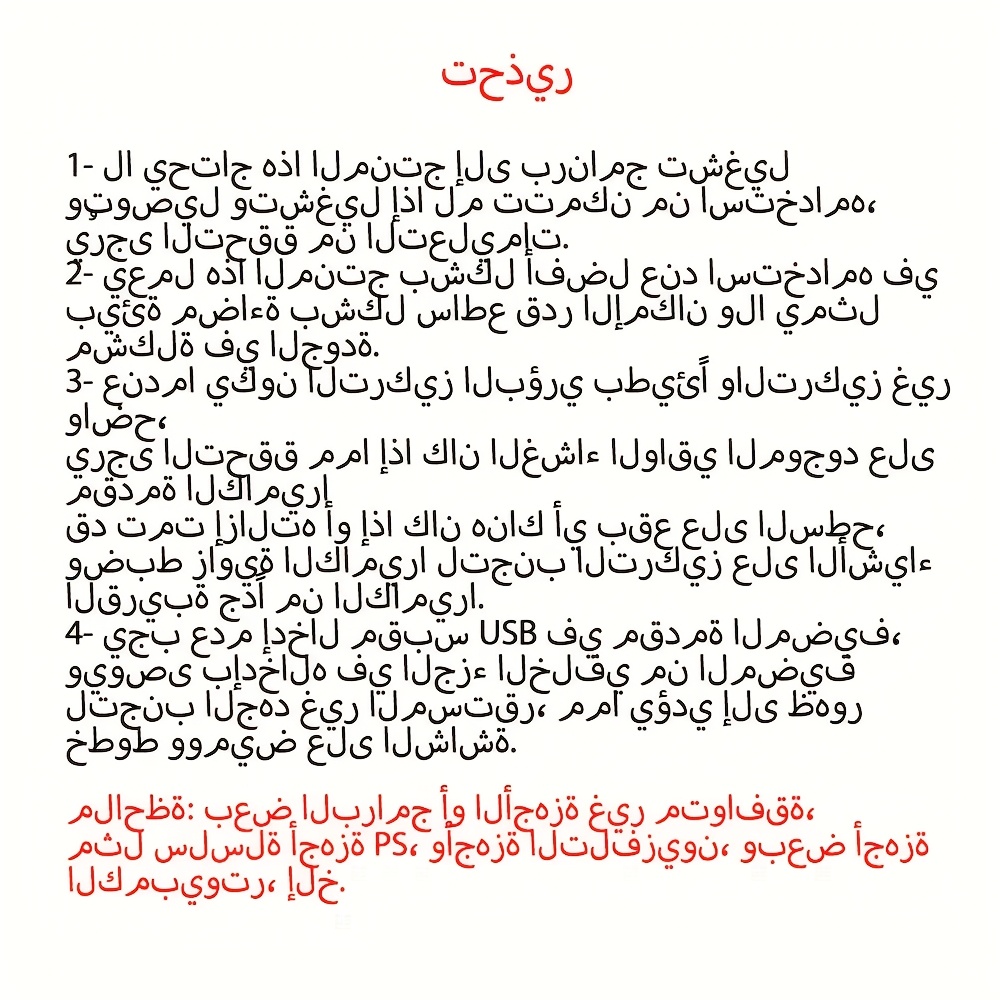 تحذير
1- لا يحتاج هذا المنتج إلى برنامج تشغيل
وتوصيل وتشغيل إذا لم تتمكن من استخدامه،
يُرجى التحقق من التعليمات.
2- يعمل هذا المنتج بشكل أفضل عند استخدامه في
بيئة مضاءة بشكل ساطع قدر الإمكان ولا يمثل
مشكلة في الجودة.
3- عندما يكون التركيز البؤري بطيئًا والتركيز غير
واضح،
يرجى التحقق مما إذا كان الغشاء الواقي الموجود على
مقدمة الكاميرا
قد تمت إزالته أو إذا كان هناك أي بقع على السطح،
وضبط زاوية الكاميرا لتجنب التركيز على الأشياء
القريبة جدًا من الكاميرا.
4- يجب عدم إدخال مقبس USB في مقدمة المضيف،
ويوصى بإدخاله في الجزء الخلفي من المضيف
لتجنب الجهد غير المستقر، مما يؤدي إلى ظهور
خطوط ووميض على الشاشة.
ملاحظة: بعض البرامج أو الأجهزة غير متوافقة،
مثل سلسلة أجهزة PS، وأجهزة التلفزيون، وبعض أجهزة
الكمبيوتر، إلخ.